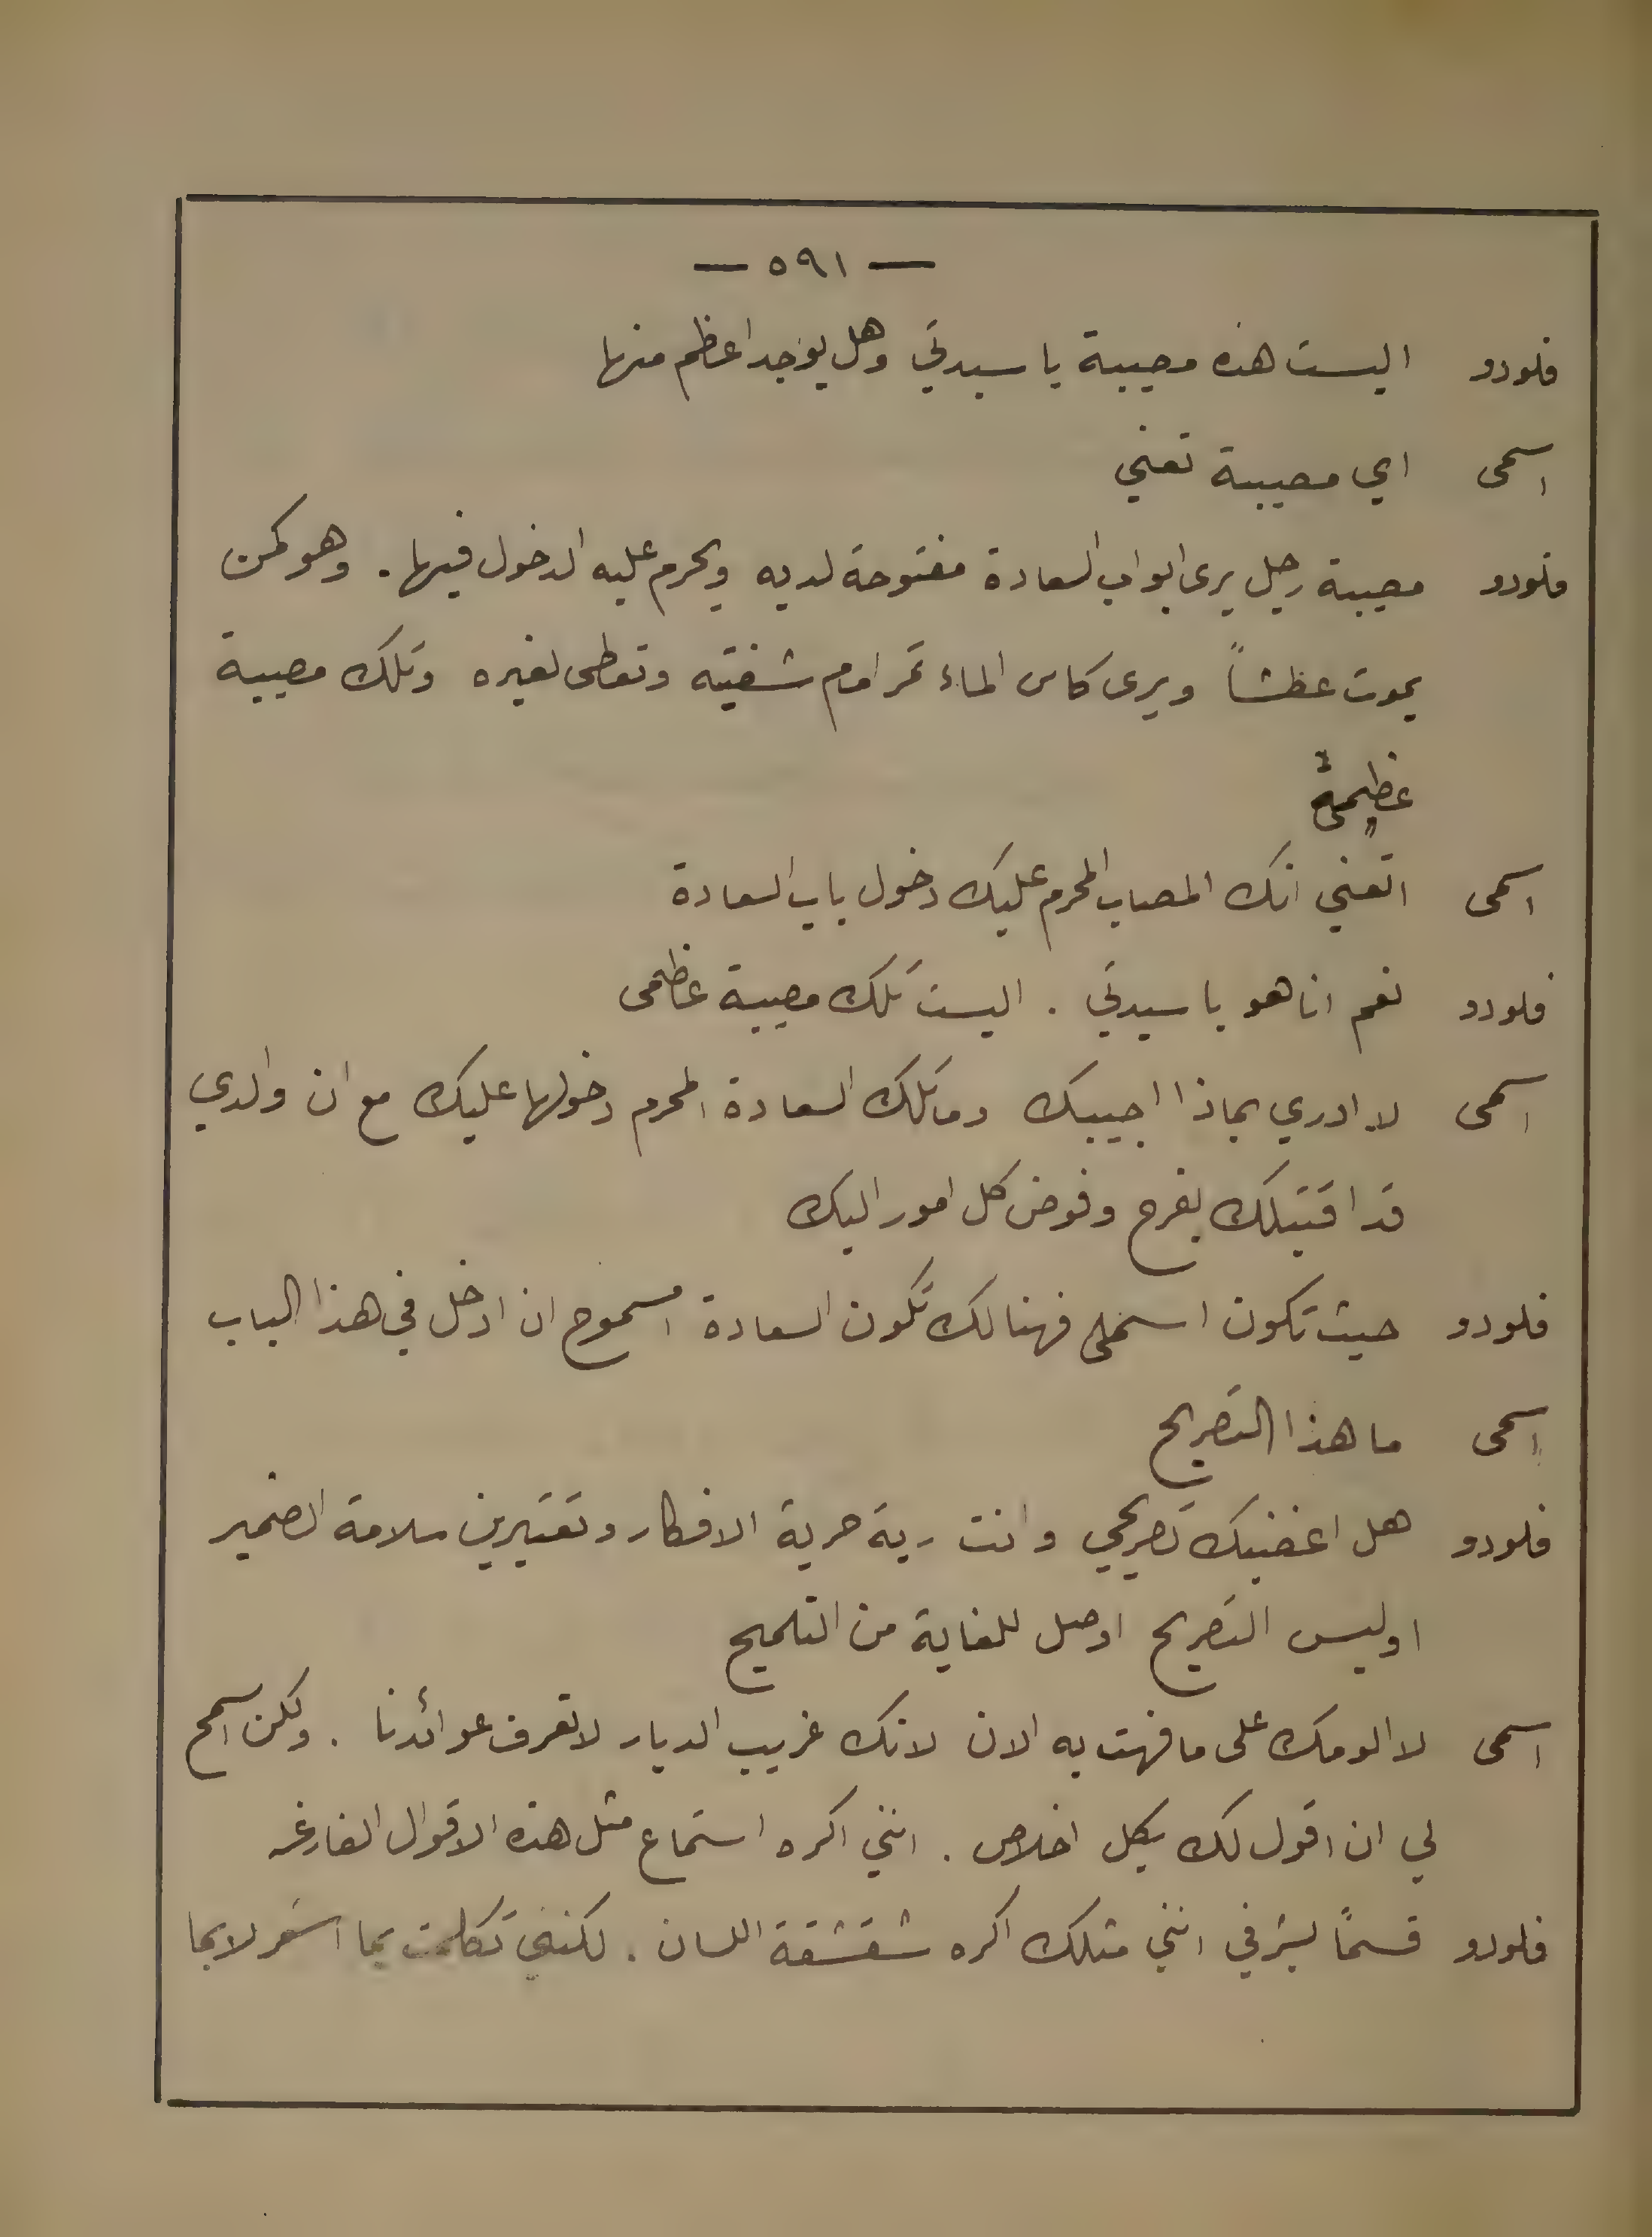 — ٥٩١ —
فلودو اليست هذه مصيبة يا سيدتي وهل يوجد اعظم منها
اسمى اي مصيبة تعني
فلودو مصيبة رجل يرى ابواب السعادة مفتوحة لديه ويحرم عليه الدخول فيها . وهو كمن
يموت عطشاً ويرى كاس الماء تمر امام شفتيه وتعطى لغيره وتلك مصيبة
عظيمة
اسمى اتعني انك المصاب المحرم عليك دخول باب السعادة
فلودو نعم انا هو يا سيدتي . اليست تلك مصيبة عظمى
اسمى لا ادري بماذا اجيبك وما تلك السعادة المحرم دخولها عليك مع ان والدي
قد اقتبلك بفرح وفوض كل امور اليك
فلودو حيث تكون اسمى فهنالك تكون السعادة امسموح ان ادخل في هذا الباب
اسمى ما هذا التصريح
فلودو هل اغضبك تصريحي وانت ربة حرية الافكار وتعتبرين سلامة الضمير
اوليس التصريح اوصل للغاية من التلميح
اسمى لا الومك على ما فهت به الان لانك غريب الديار لا تعرف عوائدنا . ولكن اسمح
لي ان اقول لك بكل اخلاص . انني اكره استماع مثل هذه الاقوال الفارغه
فلودو قسماً بشرفي انني مثلك اكره شقشقة اللسان . لكنني تكلمت بما اشعر لا بما